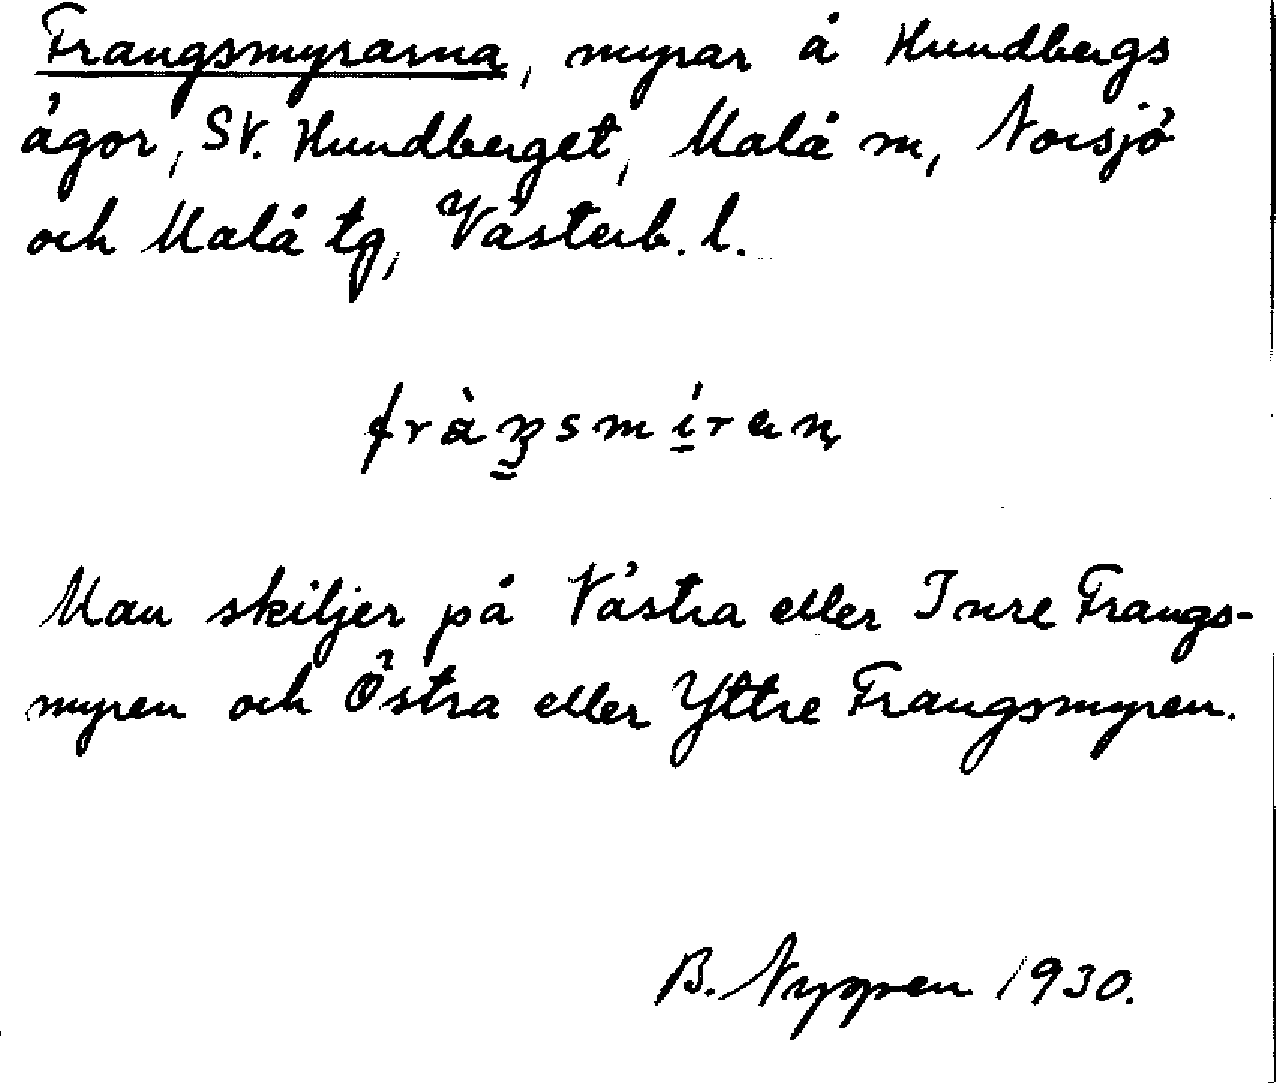 Frangsmyrarna, myrar å Hundbergs
ägor, SV. Hundberget, Malå sn, Norsjö
och Malå tg, Västerb. l.
Man skiljer på Västra eller Inre Frangs-
myren och Östra eller Yttre Frangsmyren.
B. Nygren 1930.